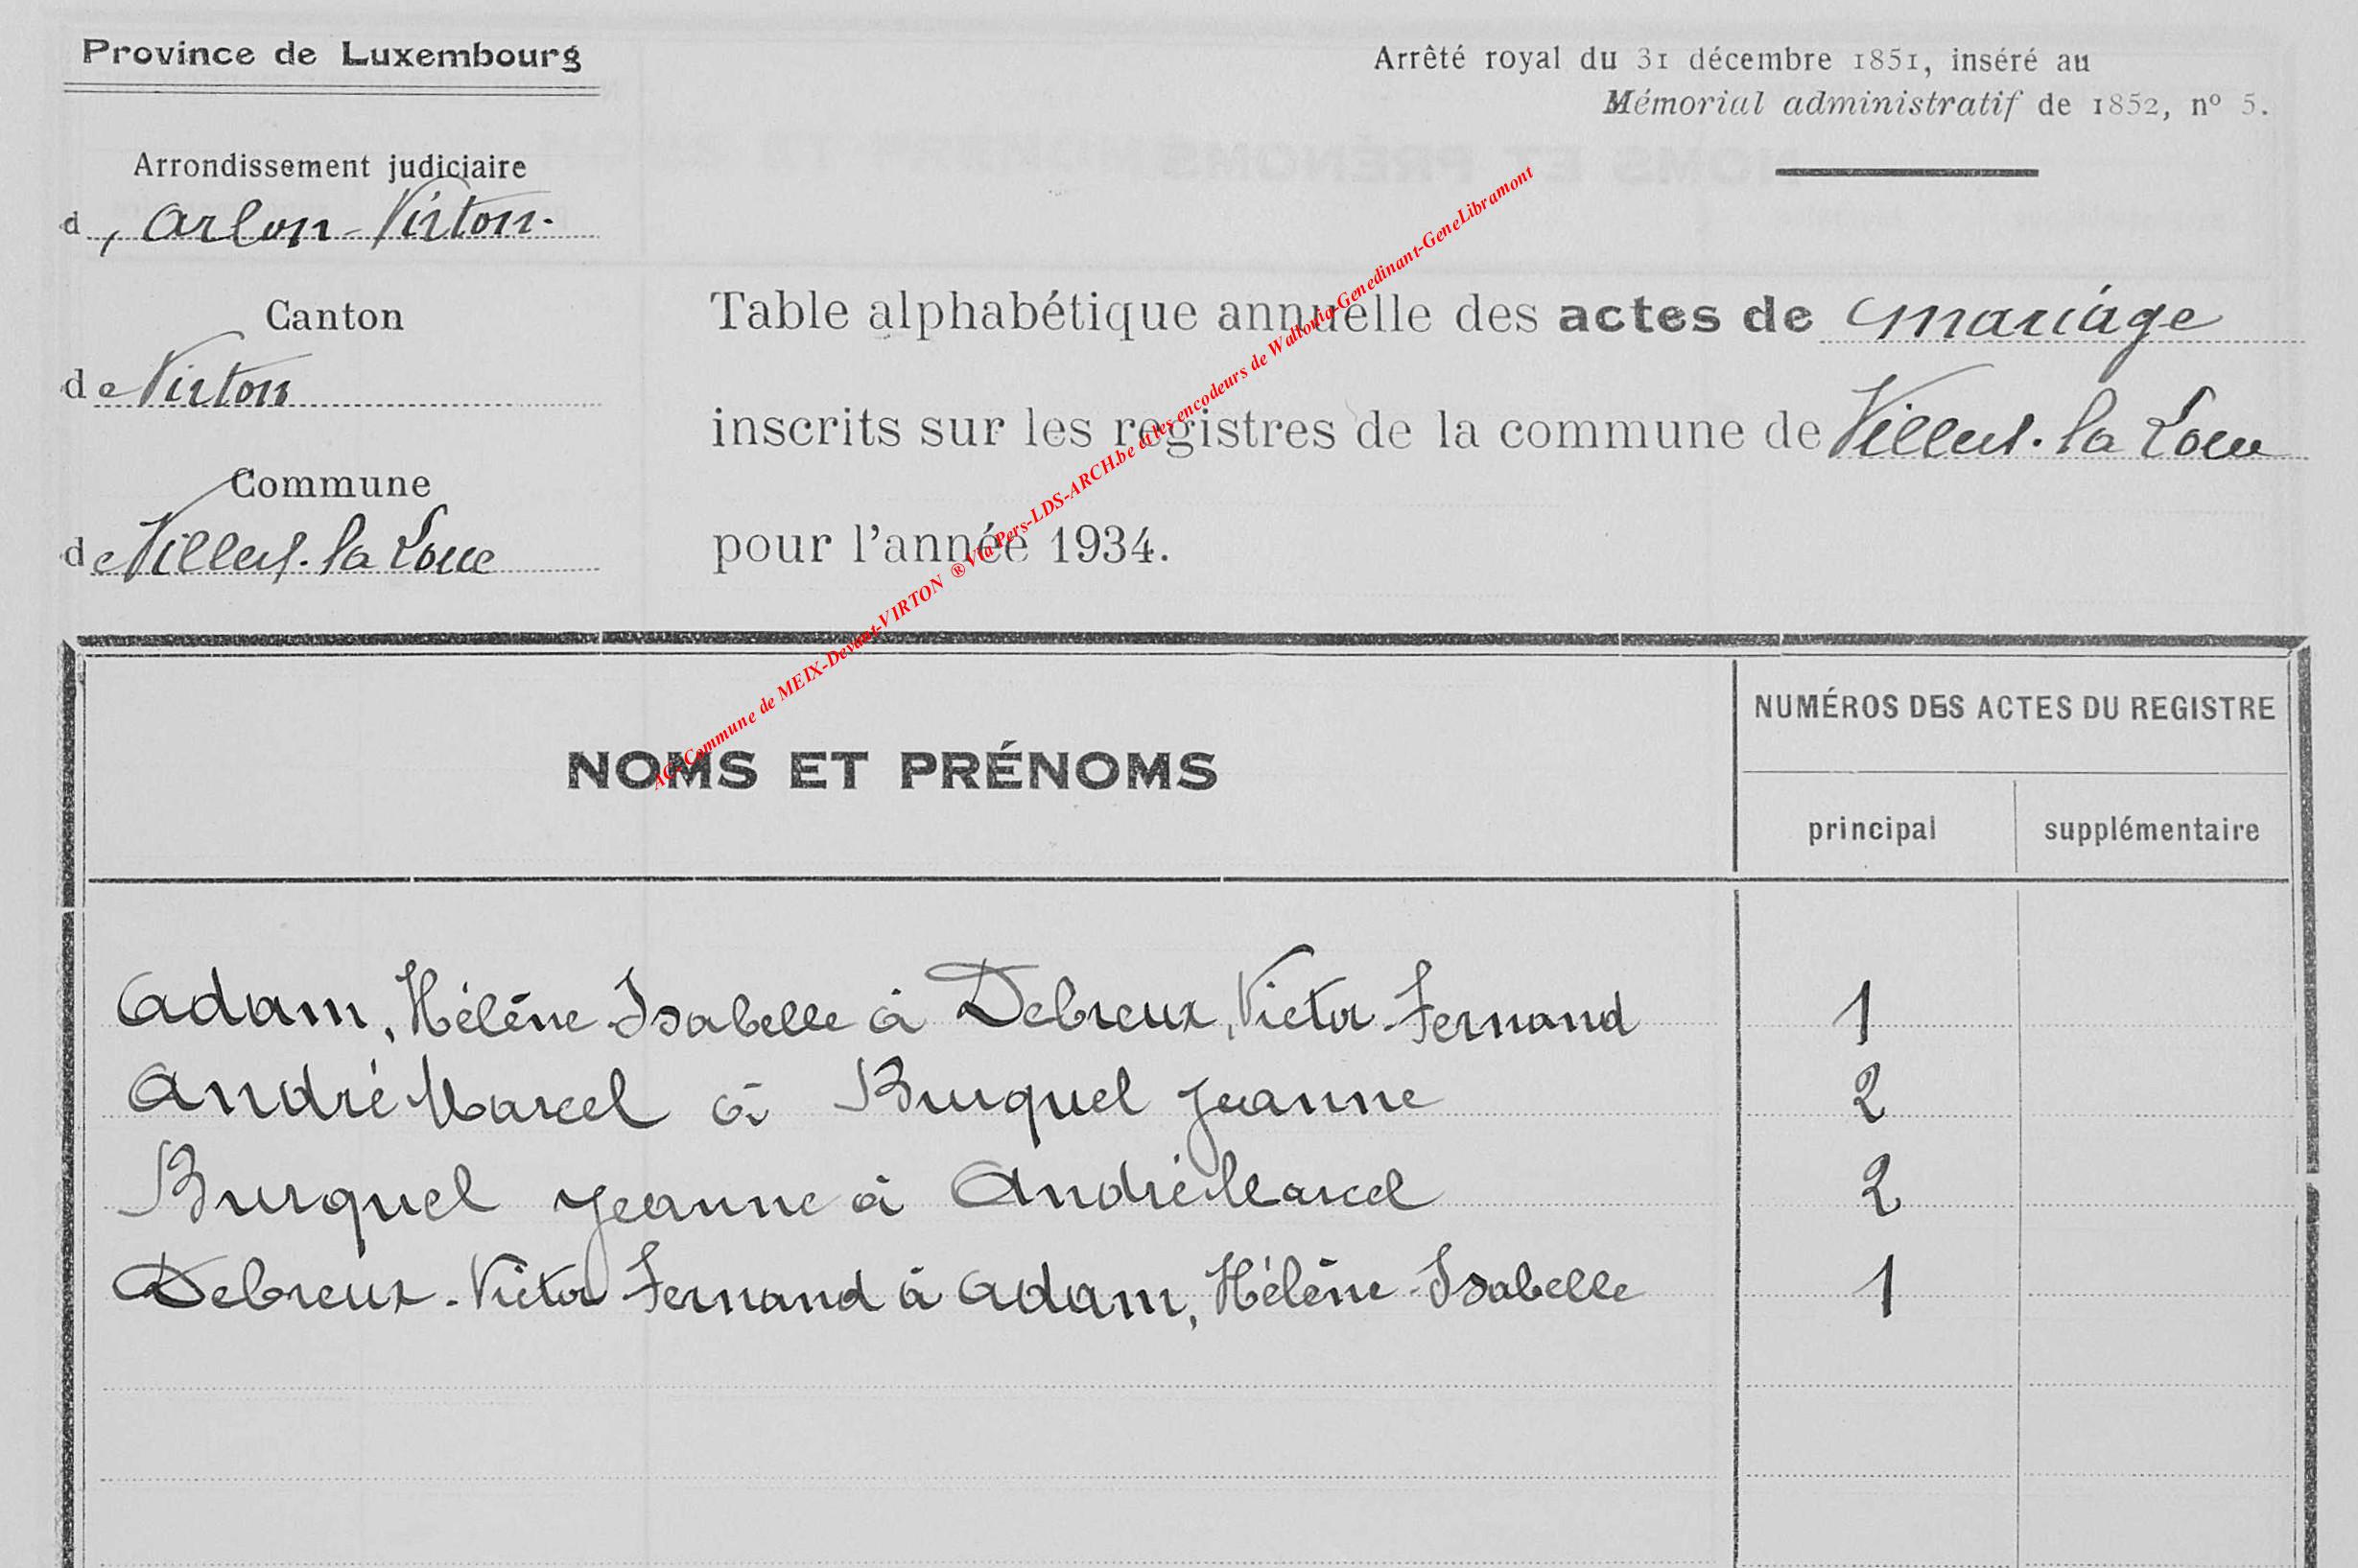 Province de Luxembourg
Arrêté royal du 31 décembre 1851, inséré au
Mémorial administratif de 1852, nº 5.
Arrondissement judiciaire
d'Arlon-Virton.
Canton
de Virton
Commune
de Villers-la Loue
Table alphabétique annuelle des actes de mariage
inscrits sur les registres de la commune de Villers-la Loue
pour l'année 1934.
AG-Commune de MEIX-Devant-VIRTON ® Via Pers-LDS-ARCH.be et les encodeurs de Wallonia-Genedinant-GeneLibramont
NOMS ET PRÉNOMS
NUMÉROS DES ACTES DU REGISTRE
principal supplémentaire
Adam, Hélène Isabelle à Debreux, Victor Fernand 1
André Marcel à Burquel Jeanne 2
Burquel Jeanne à André Marcel 2
Debreux-Victor Fernand à Adam, Hélène-Isabelle 1